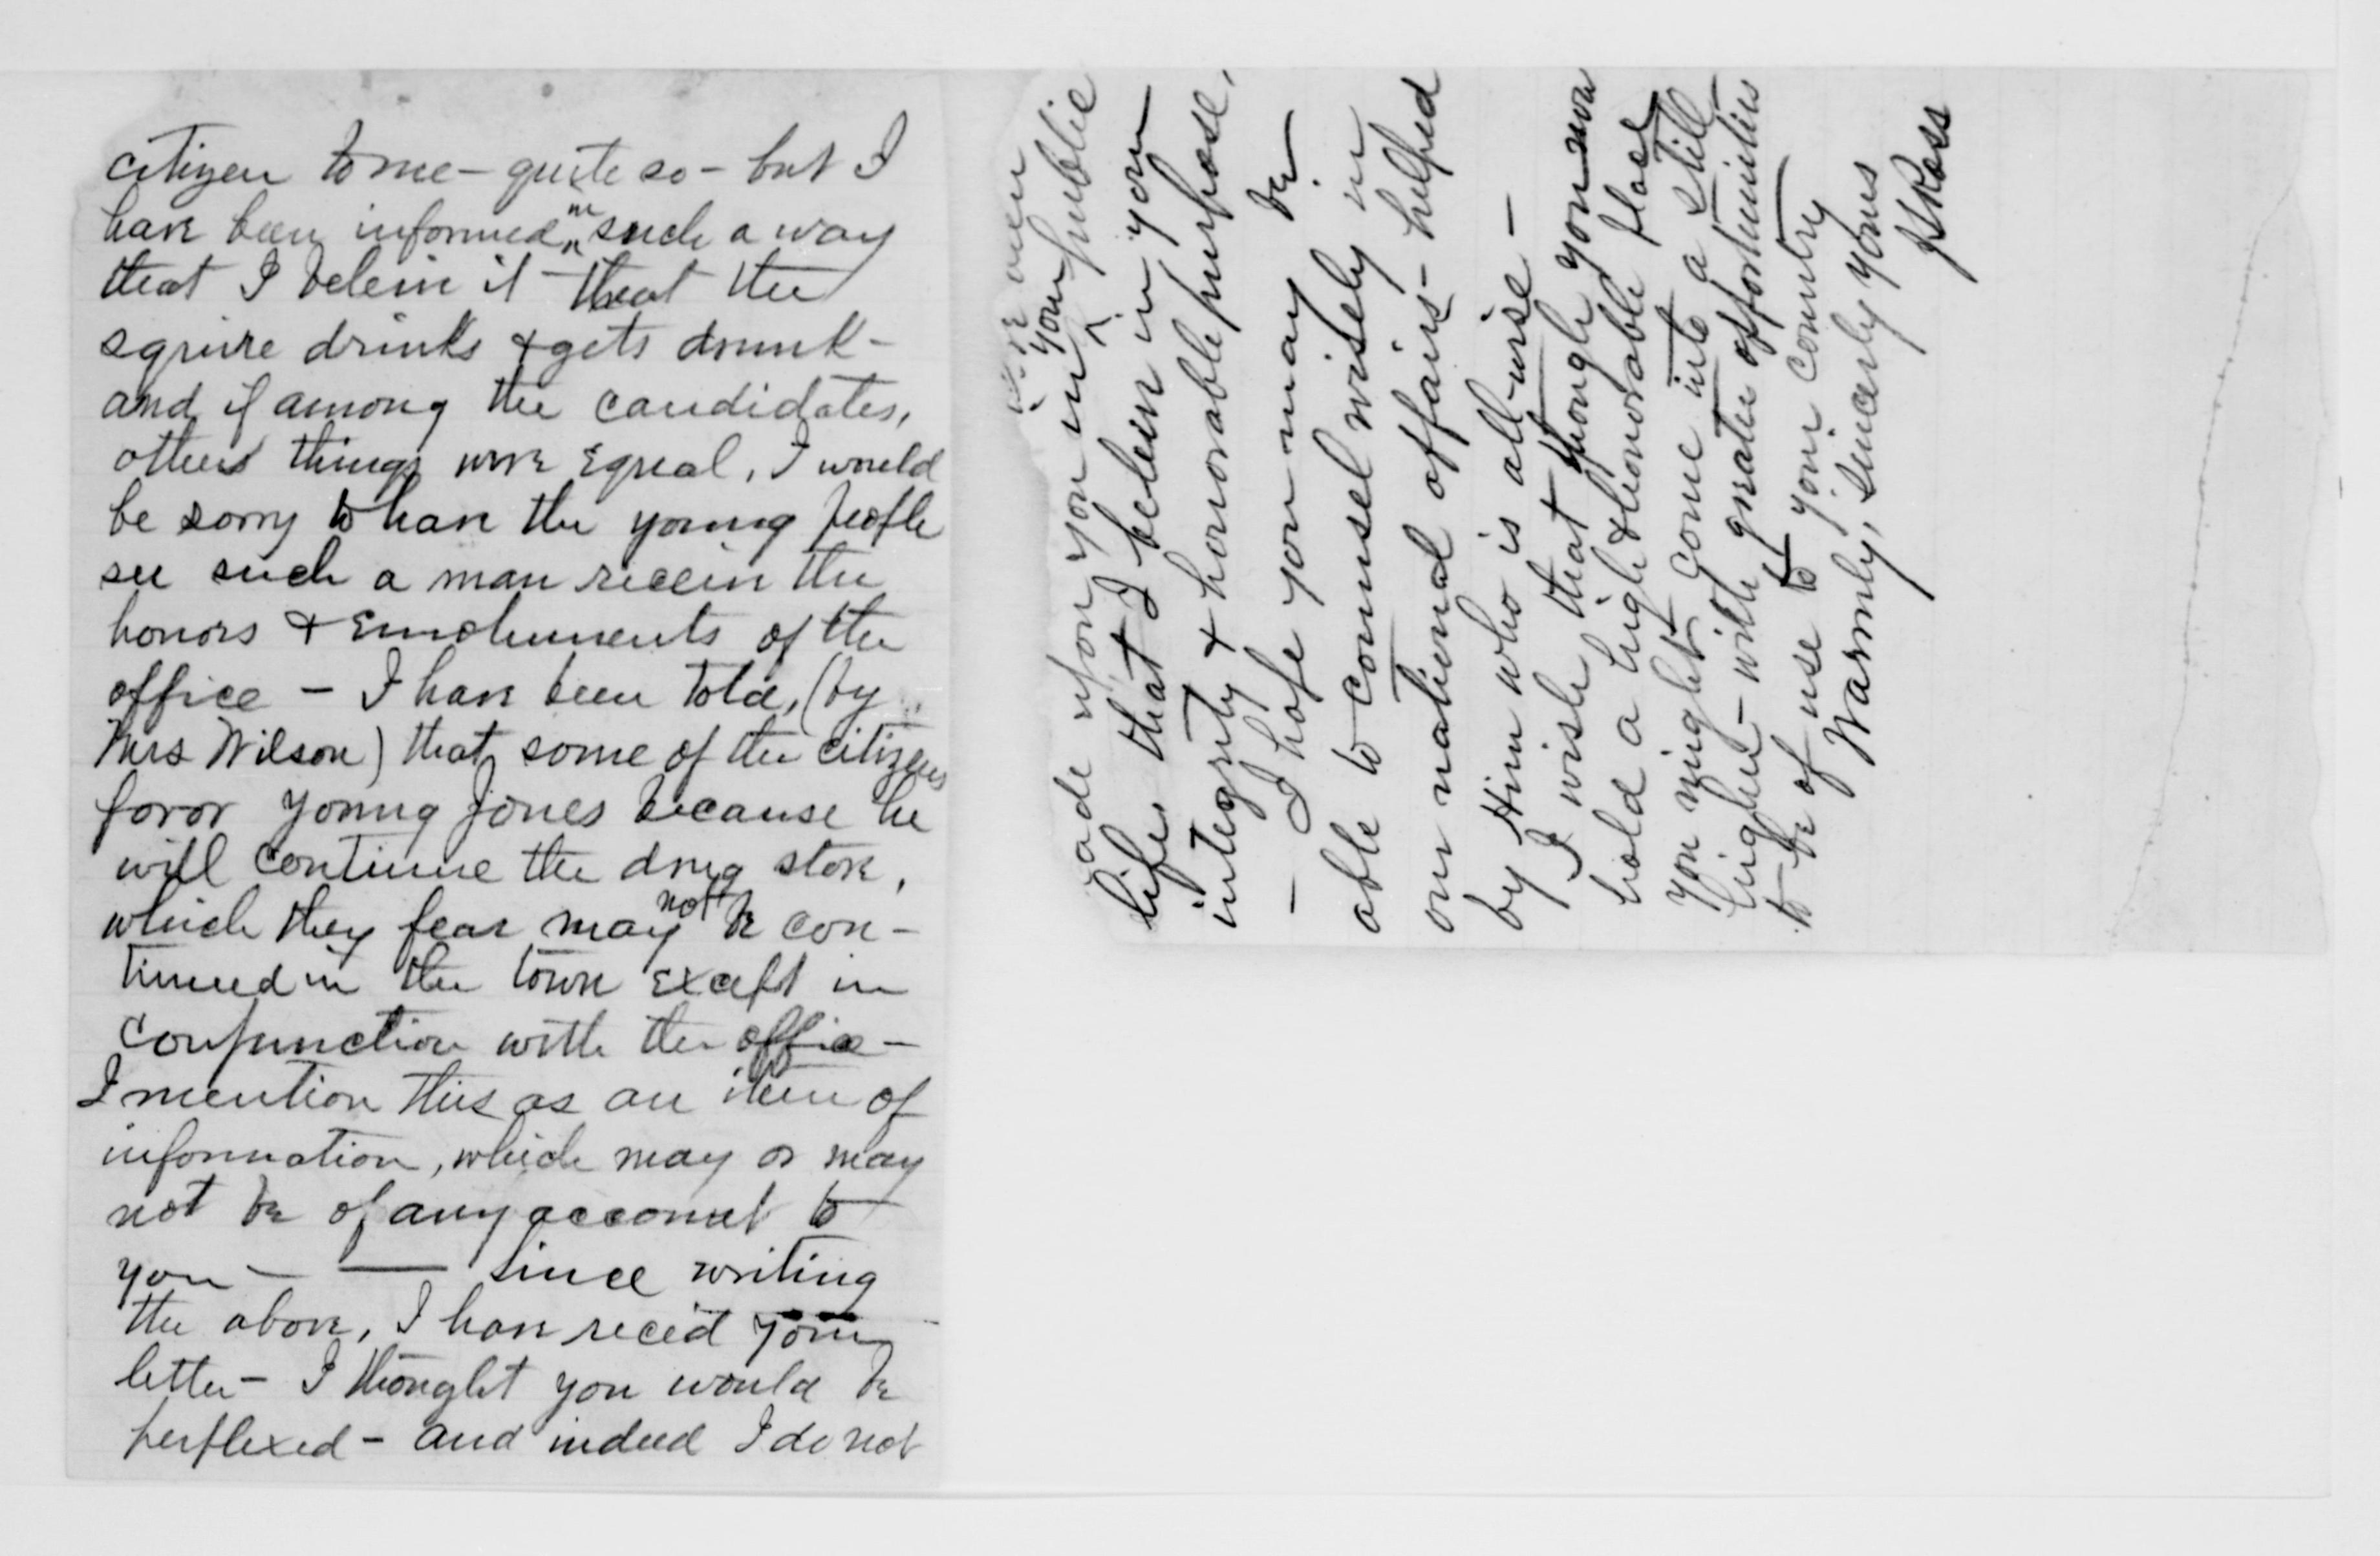 citizen to me - quite so - but I
have been informed in such a way
that I believe it - that the
squire drinks & gets drunk -
and if among the candidates,
others things were equal, I would
be sorry to have the young people
see such a man receive the
honors & emoluments of the
office - I have been told, (by
Mrs Wilson) that some of the citizens
favor young Jones because he
will continue the drug store,
which they fear may not be con-
tinued in the town except in
conjunction with the office -
I mention this as an item of
information, which may or may
not be of any account to
you - — Since writing
the above, I have rec'd your
letter - I thought you would be
perplexed - and indeed I do not
made upon you in your public
life, that I believe in your
integrity & honorable purpose,
- I hope you may be
able to counsel wisely in
our national affairs - helped
by Him who is all-wise -
I wish that though you now
hold a high & honorable place
you might come into a still
higher - with greater opportunities
to be of use to your country
Warmly, sincerely yours
JS Ross